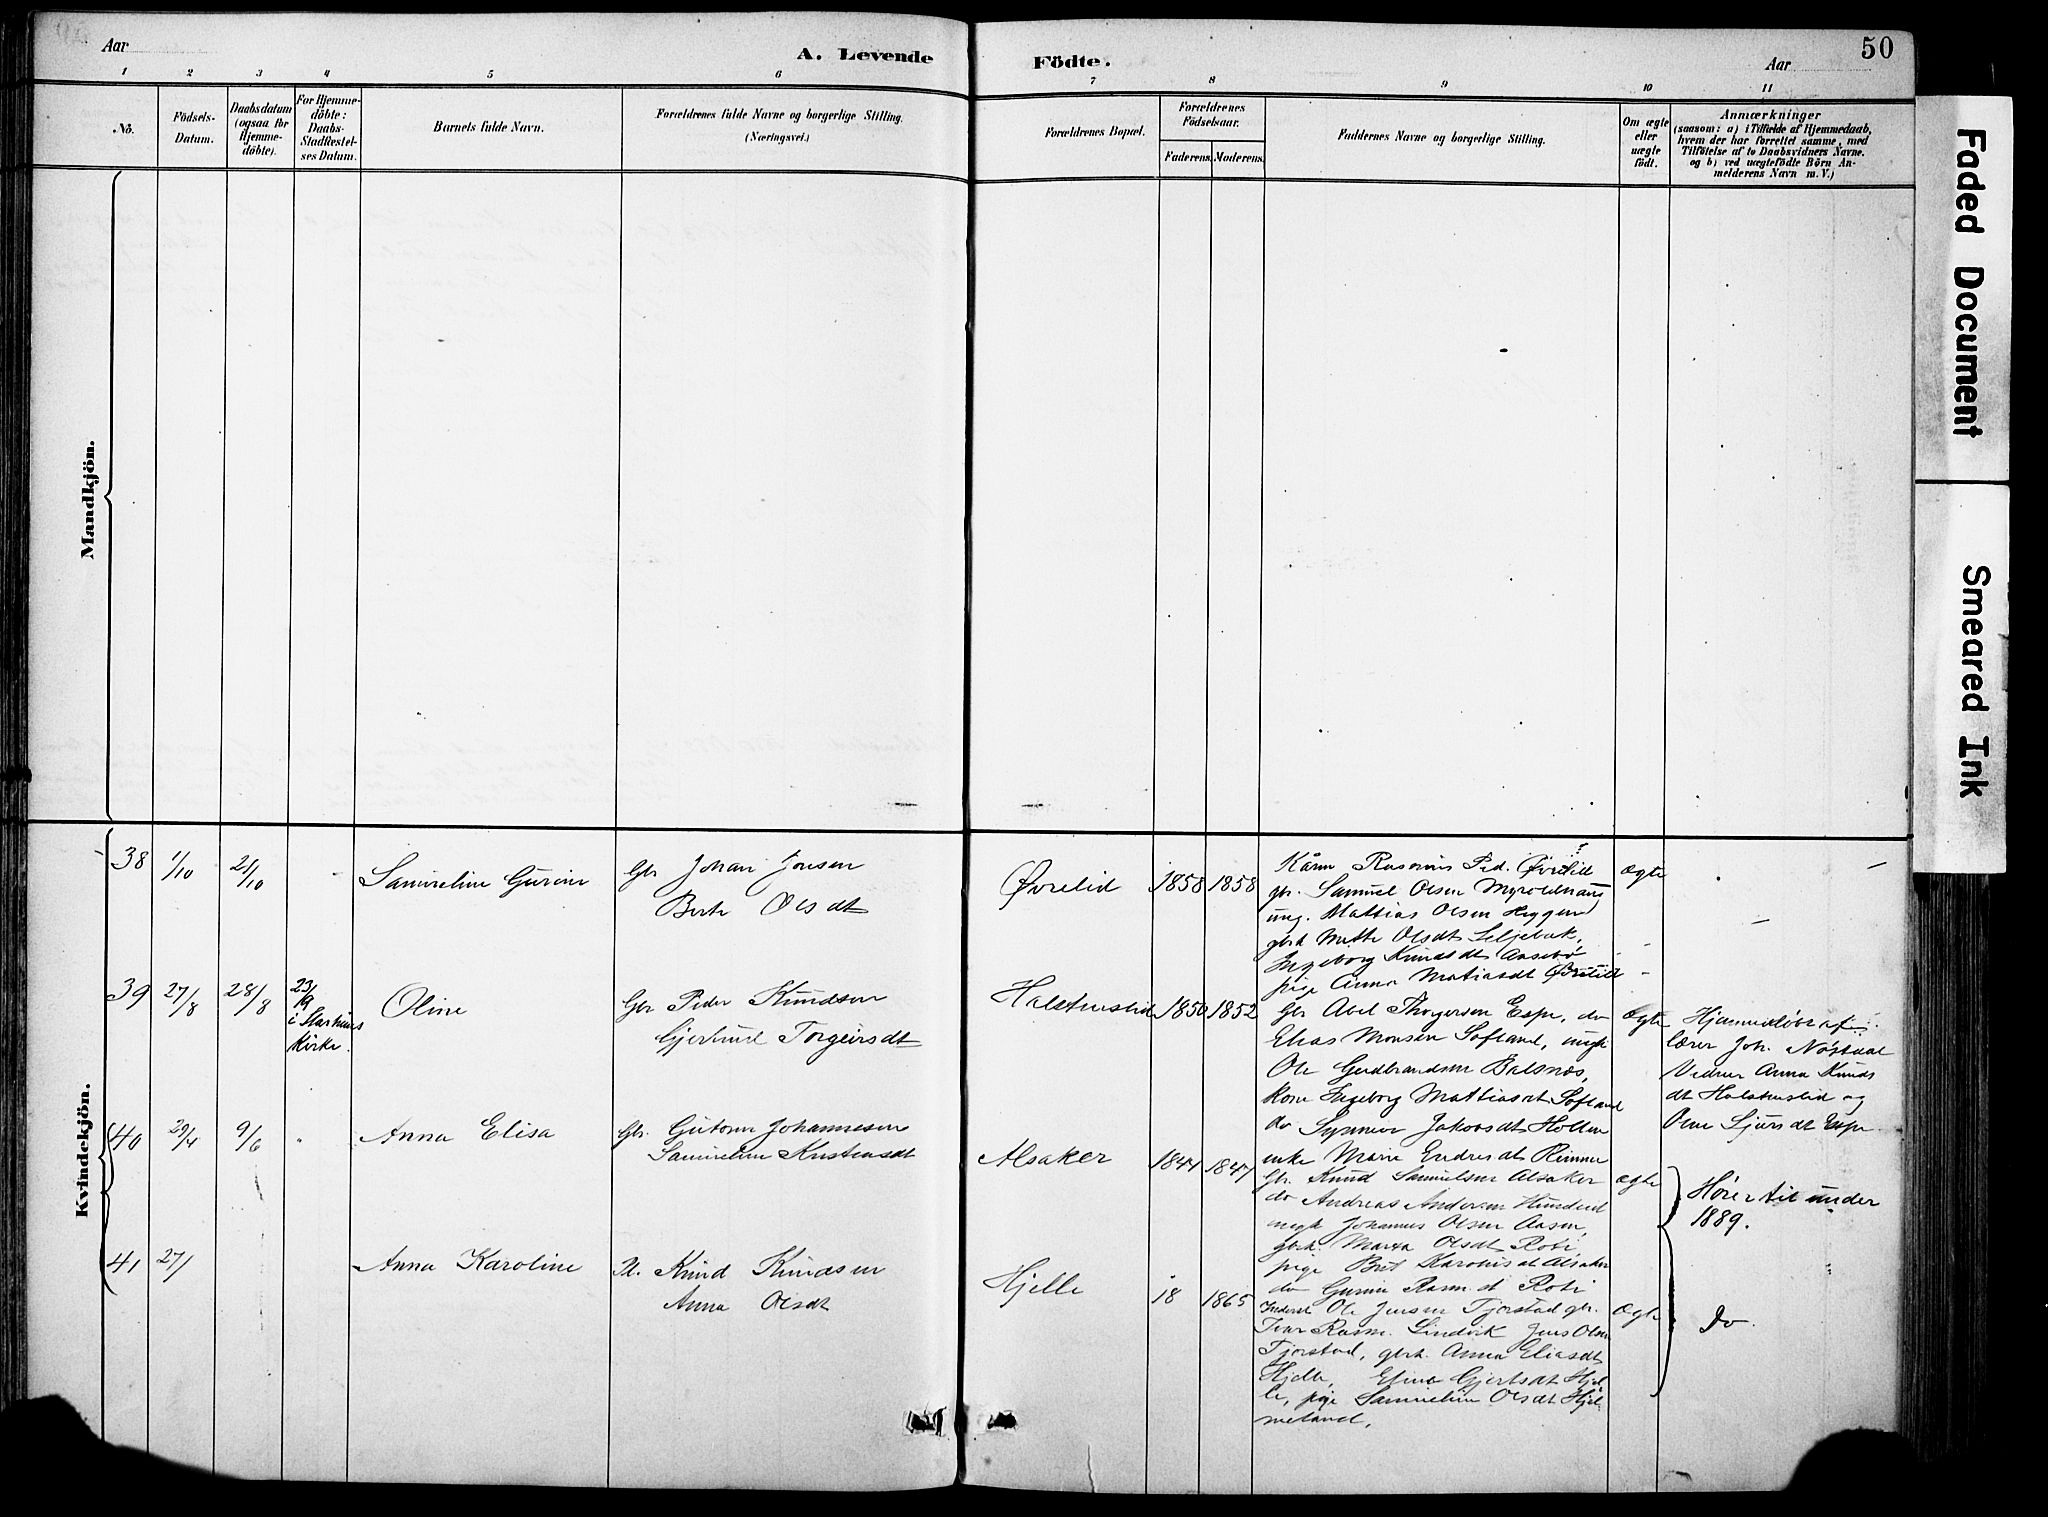 50
Aar
A. Levende Födte.
Aar
1 2 3 4 5 6 7 8 9 10 11
No.
Födsels-
Datum.
Daabsdatum
(ogsaa for
Hjemme-
döbte).
For Hjemme-
döbte:
Daabs-
Stadfæstel-
ses Datum.
Barnets fulde Navn.
Forældrenes fulde Navne og borgerlige Stilling.
(Næringsvei.)
Forældrenes Bopæl.
Forældrenes
Födselsaar.
Faderens.
Moderens.
Faddernes Navne og borgerlige Stilling.
Om ægte
eller
uægte
födt.
Anmærkninger
(saasom: a) i Tilfælde af Hjemmedaab,
hvem der har forrettet samme, med
Tilföielse af to Daabsvidners Navne.
og b) ved uægtefödte Börn An-
melderens Navn m. V.)
Mandkjön.
Kvindekjön.
38
1/10
21/10
Samueline Gurine
Gbr Johan Jonsen
Berte Olsdt
Øvrelid
1858
1858
Rasmus Ped. Øvrelid
gbr. Samuel Olsen
ung. Mattias Olsen
gbrk Mette Olsdt
Ingeborg Knudsdt Aasebø
pige Anna Matiasdt Øvrelid
ægte
39
27/8
28/8
23/9
i
Kirke.
Oline
Gbr Peder Knudsen
Gjertrud Torgeirsdt
Halstenslid
1850
1852
Gbr Abel Thorgersen Espe, do
Elias Monsen Sofland, ungk
Ole Gerdbrandsen
kone Ingeborg Mattiasdt Sofland
do Jakobsdt Holten
enke Marie Endresdt
ægte
Hjemmedøbt af
lærer Joh.
Anna Knuds
dt Halstenslid og
Sjursdt Espe
40
29/4
9/6
"
Anna Elisa
Gbr. Gutorm Johannesen
Samueline Kristensdt
Alsaker
1844
1847
Gbr. Knud Samuelsen Alsaker
do Andreas Andersen
ungk Johannes Olsen Aasen,
gbrk. Marta Olsdt
pige Alsaker
do
ægte
Hører til under
1889.
41
27/1
Anna Karoline
Pl. Knud Knudsen
Anna Olsdt
Hjelle
18
1865
Ole Jensen Tjørstad gbr.
Ivar Rasm. Lindvik Jens Olsen
Tjørstad, gbrk. Anna Eliasdt
Hjelle, Gjertsdt Hjel-
le, pige Samueline Olsdt Hjel-
meland.
ægte
Do
Faded Document
Smeared Ink